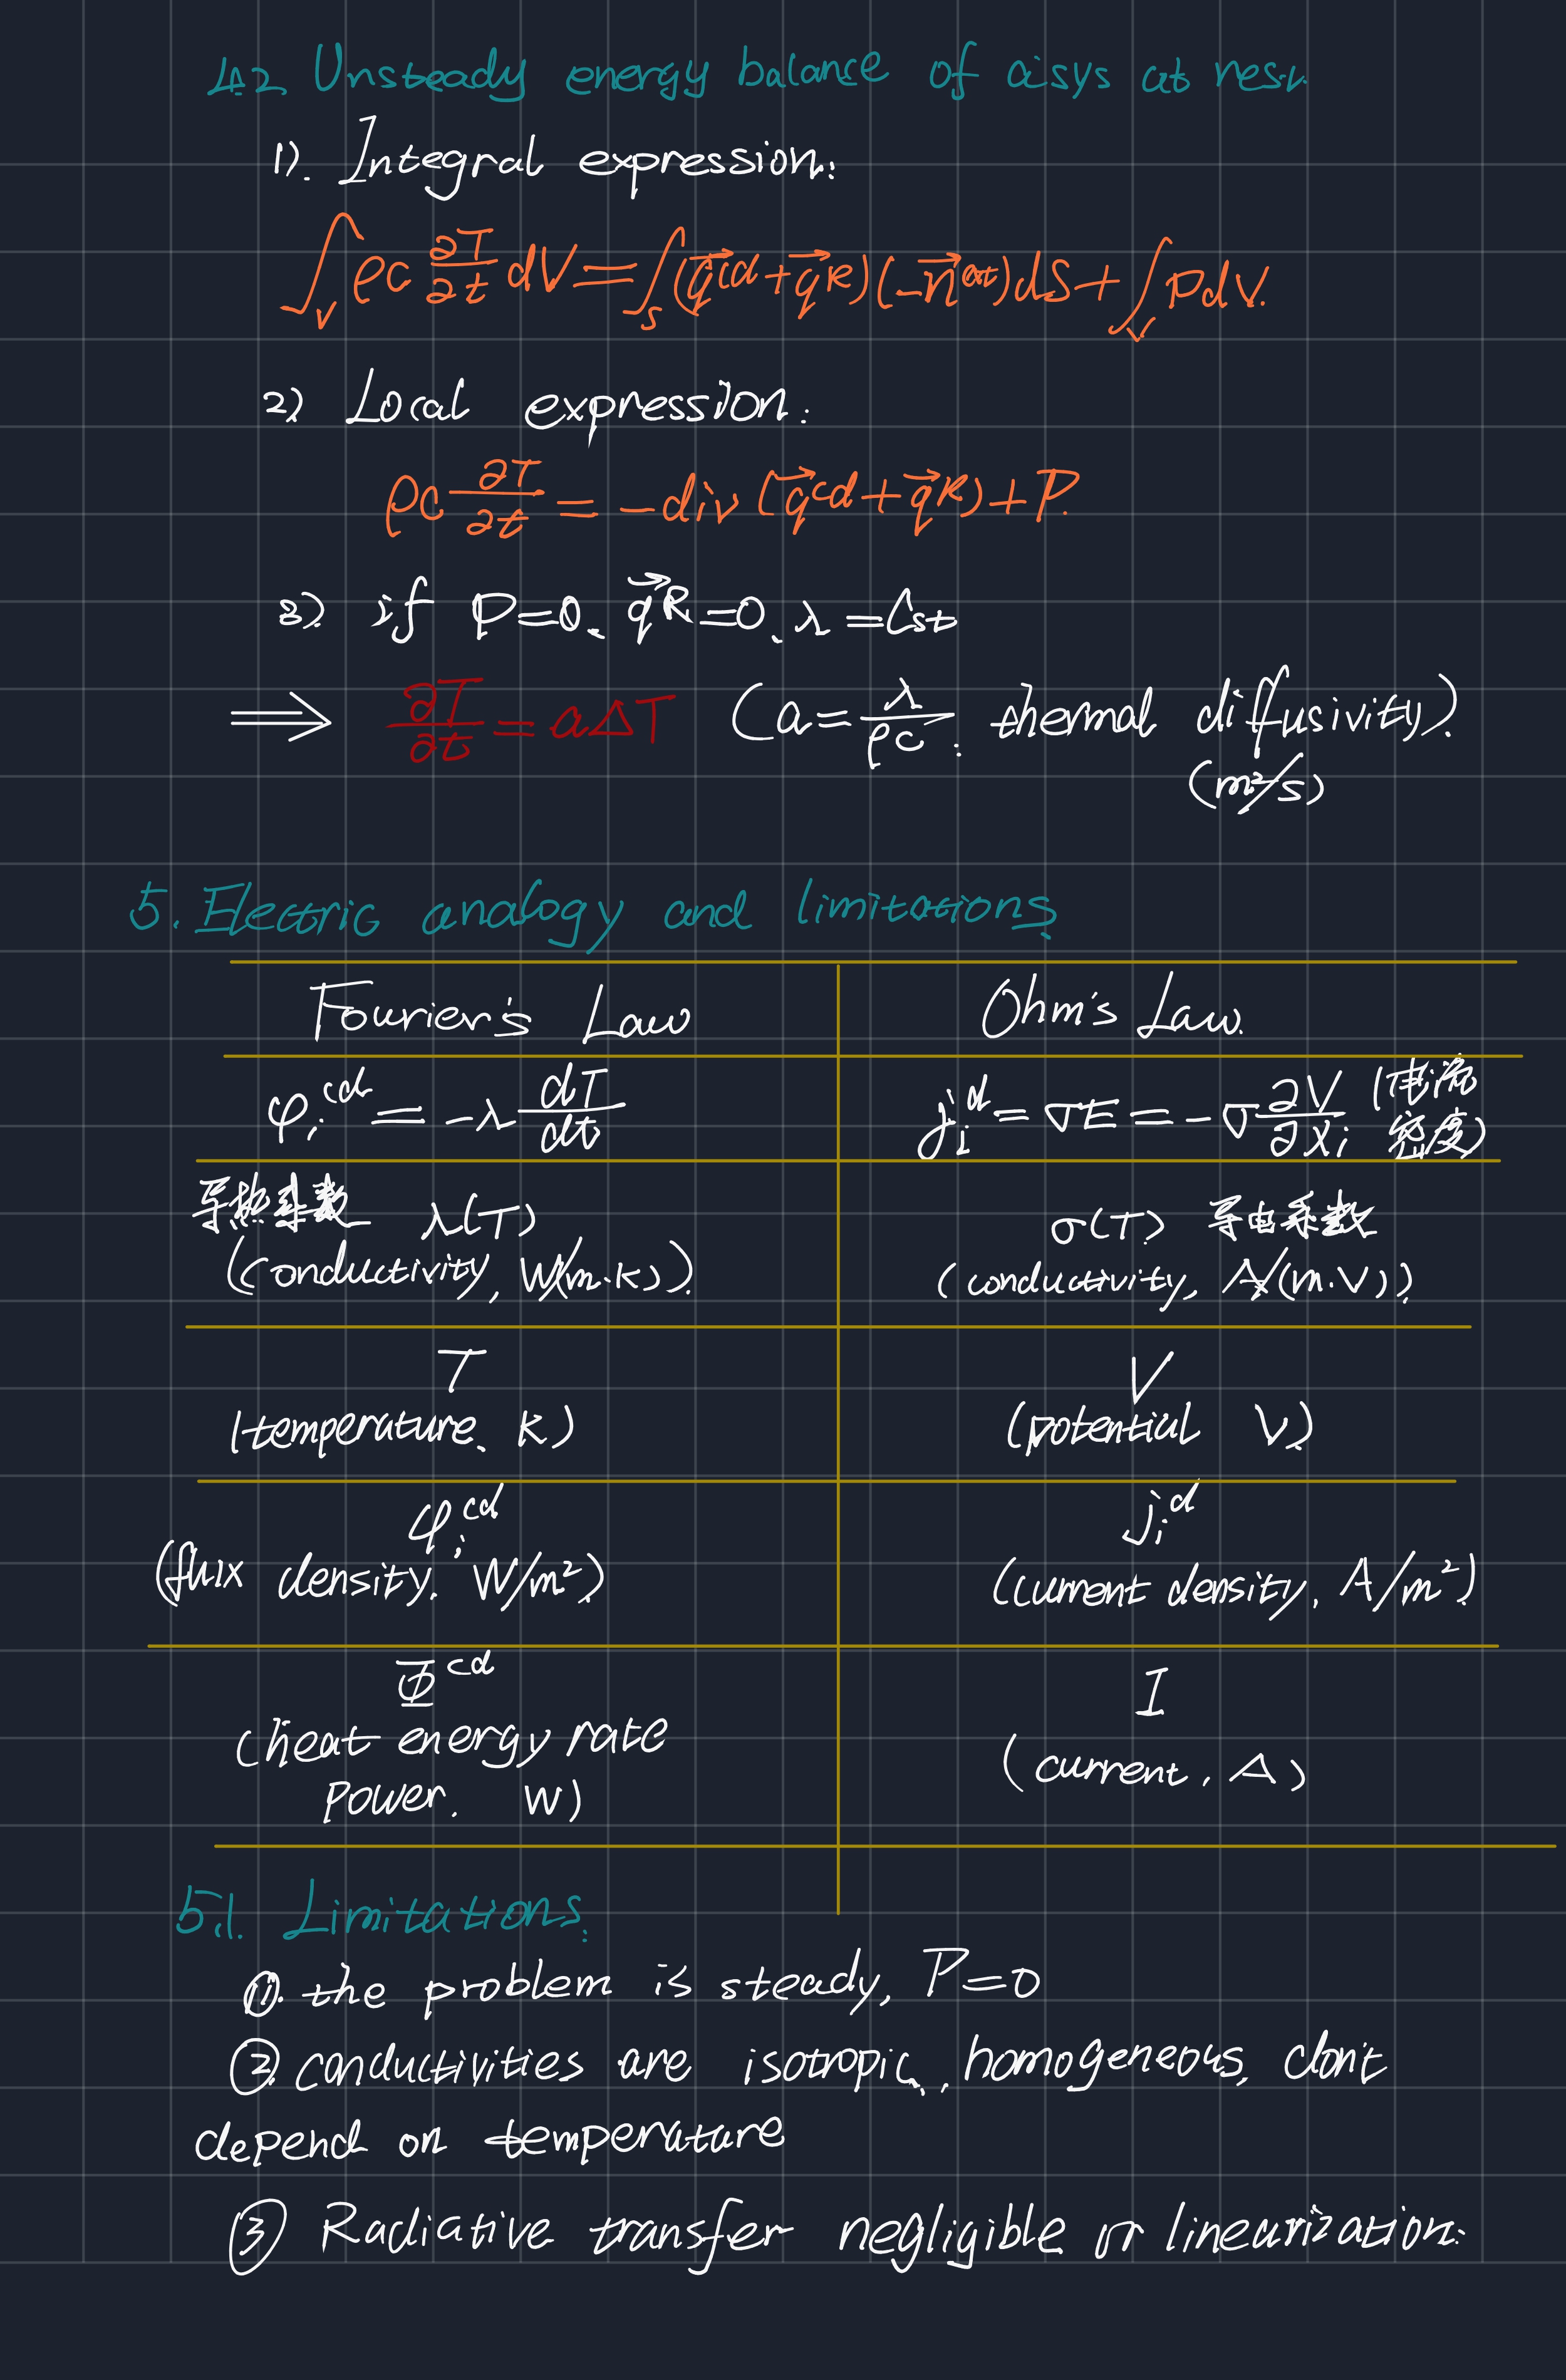 4.2 Unsteady energy balance of a sys at rest.
1). Integral expression:
∫_V ρc ∂T/∂t dV = ∫_S (q⃗^cd + q⃗^R)(-n⃗^out)dS + ∫_V P dV.
2) Local expression:
ρc ∂T/∂t = -div (q⃗^cd + q⃗^R) + P.
3) if P=0、q⃗^R=0、λ=Cst
⟹ ∂T/∂t = aΔT (a = λ/ρc : thermal diffusivity)
(m²/s)
5. Electric analogy and limitations
Fourier's Law Ohm's Law.
φ_i^cd = -λ dT/dt j_i^d = σE = -σ ∂V/∂x_i (电流密度)
导热系数 λ(T) σ(T) 导电系数
(conductivity, W/(m·K)) (conductivity, A/(m·V))
T V
(temperature、K) (potential V)
φ_i^cd j_i^d
(flux density. W/m²) (current density, A/m²)
Φ^cd I
(heat energy rate (current, A)
power. W)
5.1. Limitations:
①. the problem is steady, P=0
② conductivities are isotropic, homogeneous, don't
depend on temperature
③ Radiative transfer negligible or linearization: